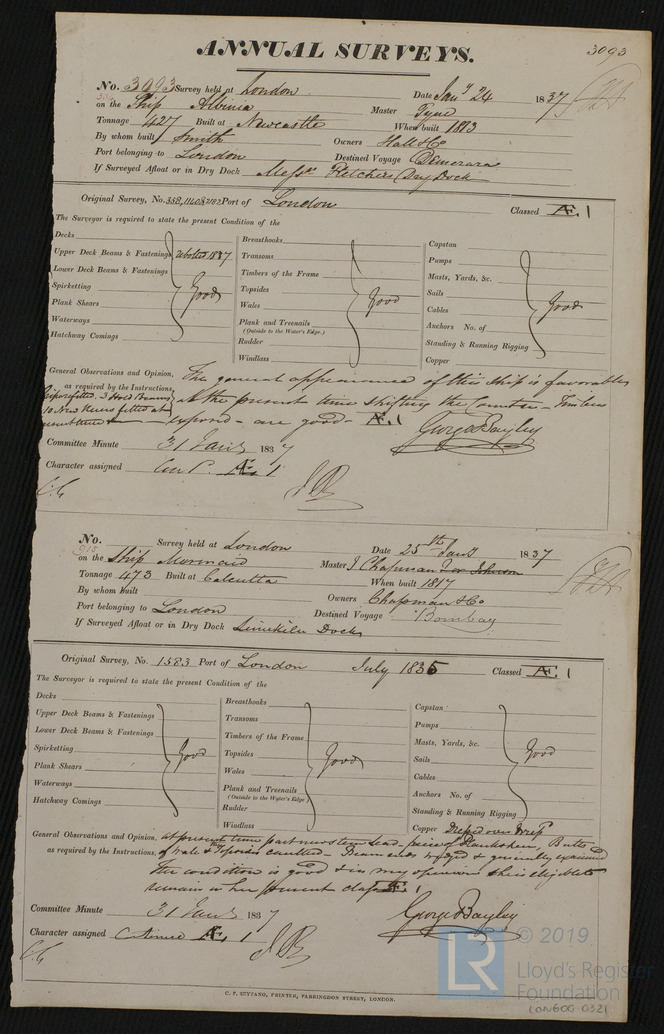 3093
ANNUAL SURVEYS.
No. 3093 Survey held at London Date Jany 24 1837
on the Ship Albinia Master Pyne
Tonnage 427 Built at Newcastle When built 1813
By whom built Smith Owners Hall & Co
Port belonging to London Destined Voyage Demerara
If Surveyed Afloat or in Dry Dock Messrs Fletchers Dry Dock
Original Survey, No. Port of London Classed Æ 1
The Surveyor is required to state the present Condition of the
Decks
Upper Deck Beams & Fastenings
Lower Deck Beams & Fastenings
Spirketting
Plank Shears
Waterways
Hatchway Comings
Good
Breasthooks
Transoms
Timbers of the Frame
Topsides
Wales
Plank and Treenails
(Outside to the Water's Edge.)
Rudder
Windlass
Good
Capstan
Pumps
Masts, Yards, &c.
Sails
Cables
Anchors No. of
Standing & Running Rigging
Copper
Good
General Observations and Opinion, The general appearance of this Ship is favorable
as required by the Instructions, at the present time shifting the Counter - Timbers
exposed - are good - Æ 1
3 Hold Beams
10 New Knees fitted at
George Bayley
Committee Minute 31 Jany 1837
Character assigned Æ 1
No. Survey held at London Date 25th Jany 1837
on the Ship Mermaid Master J Chapman
Tonnage 473 Built at Calcutta When built 1817
By whom built Owners Chapman & Co
Port belonging to London Destined Voyage Bombay
If Surveyed Afloat or in Dry Dock Limekiln Dock
Original Survey, No. 1583 Port of London July 1835 Classed Æ 1
The Surveyor is required to state the present Condition of the
Decks
Upper Deck Beams & Fastenings
Lower Deck Beams & Fastenings
Spirketting
Plank Shears
Waterways
Hatchway Comings
Good
Breasthooks
Transoms
Timbers of the Frame
Topsides
Wales
Plank and Treenails
(Outside to the Water's Edge)
Rudder
Windlass
Good
Capstan
Pumps
Masts, Yards, &c.
Sails
Cables
Anchors No. of
Standing & Running Rigging
Copper
Good
General Observations and Opinion, at present time part new stem head - piece of Plansheer, Butts
as required by the Instructions, of Wale & Topsides caulked - Beam ends wedged & generally examined
The condition is good & in my opinion she is eligible to
remain in her present class Æ 1
George Bayley
Committee Minute 31 Jany 1837
Character assigned Continued Æ 1
C. F. SEYFANG, PRINTER, FARRINGDON STREET, LONDON.
LR
© 2019
Lloyd's Register
Foundation
LON600-0321